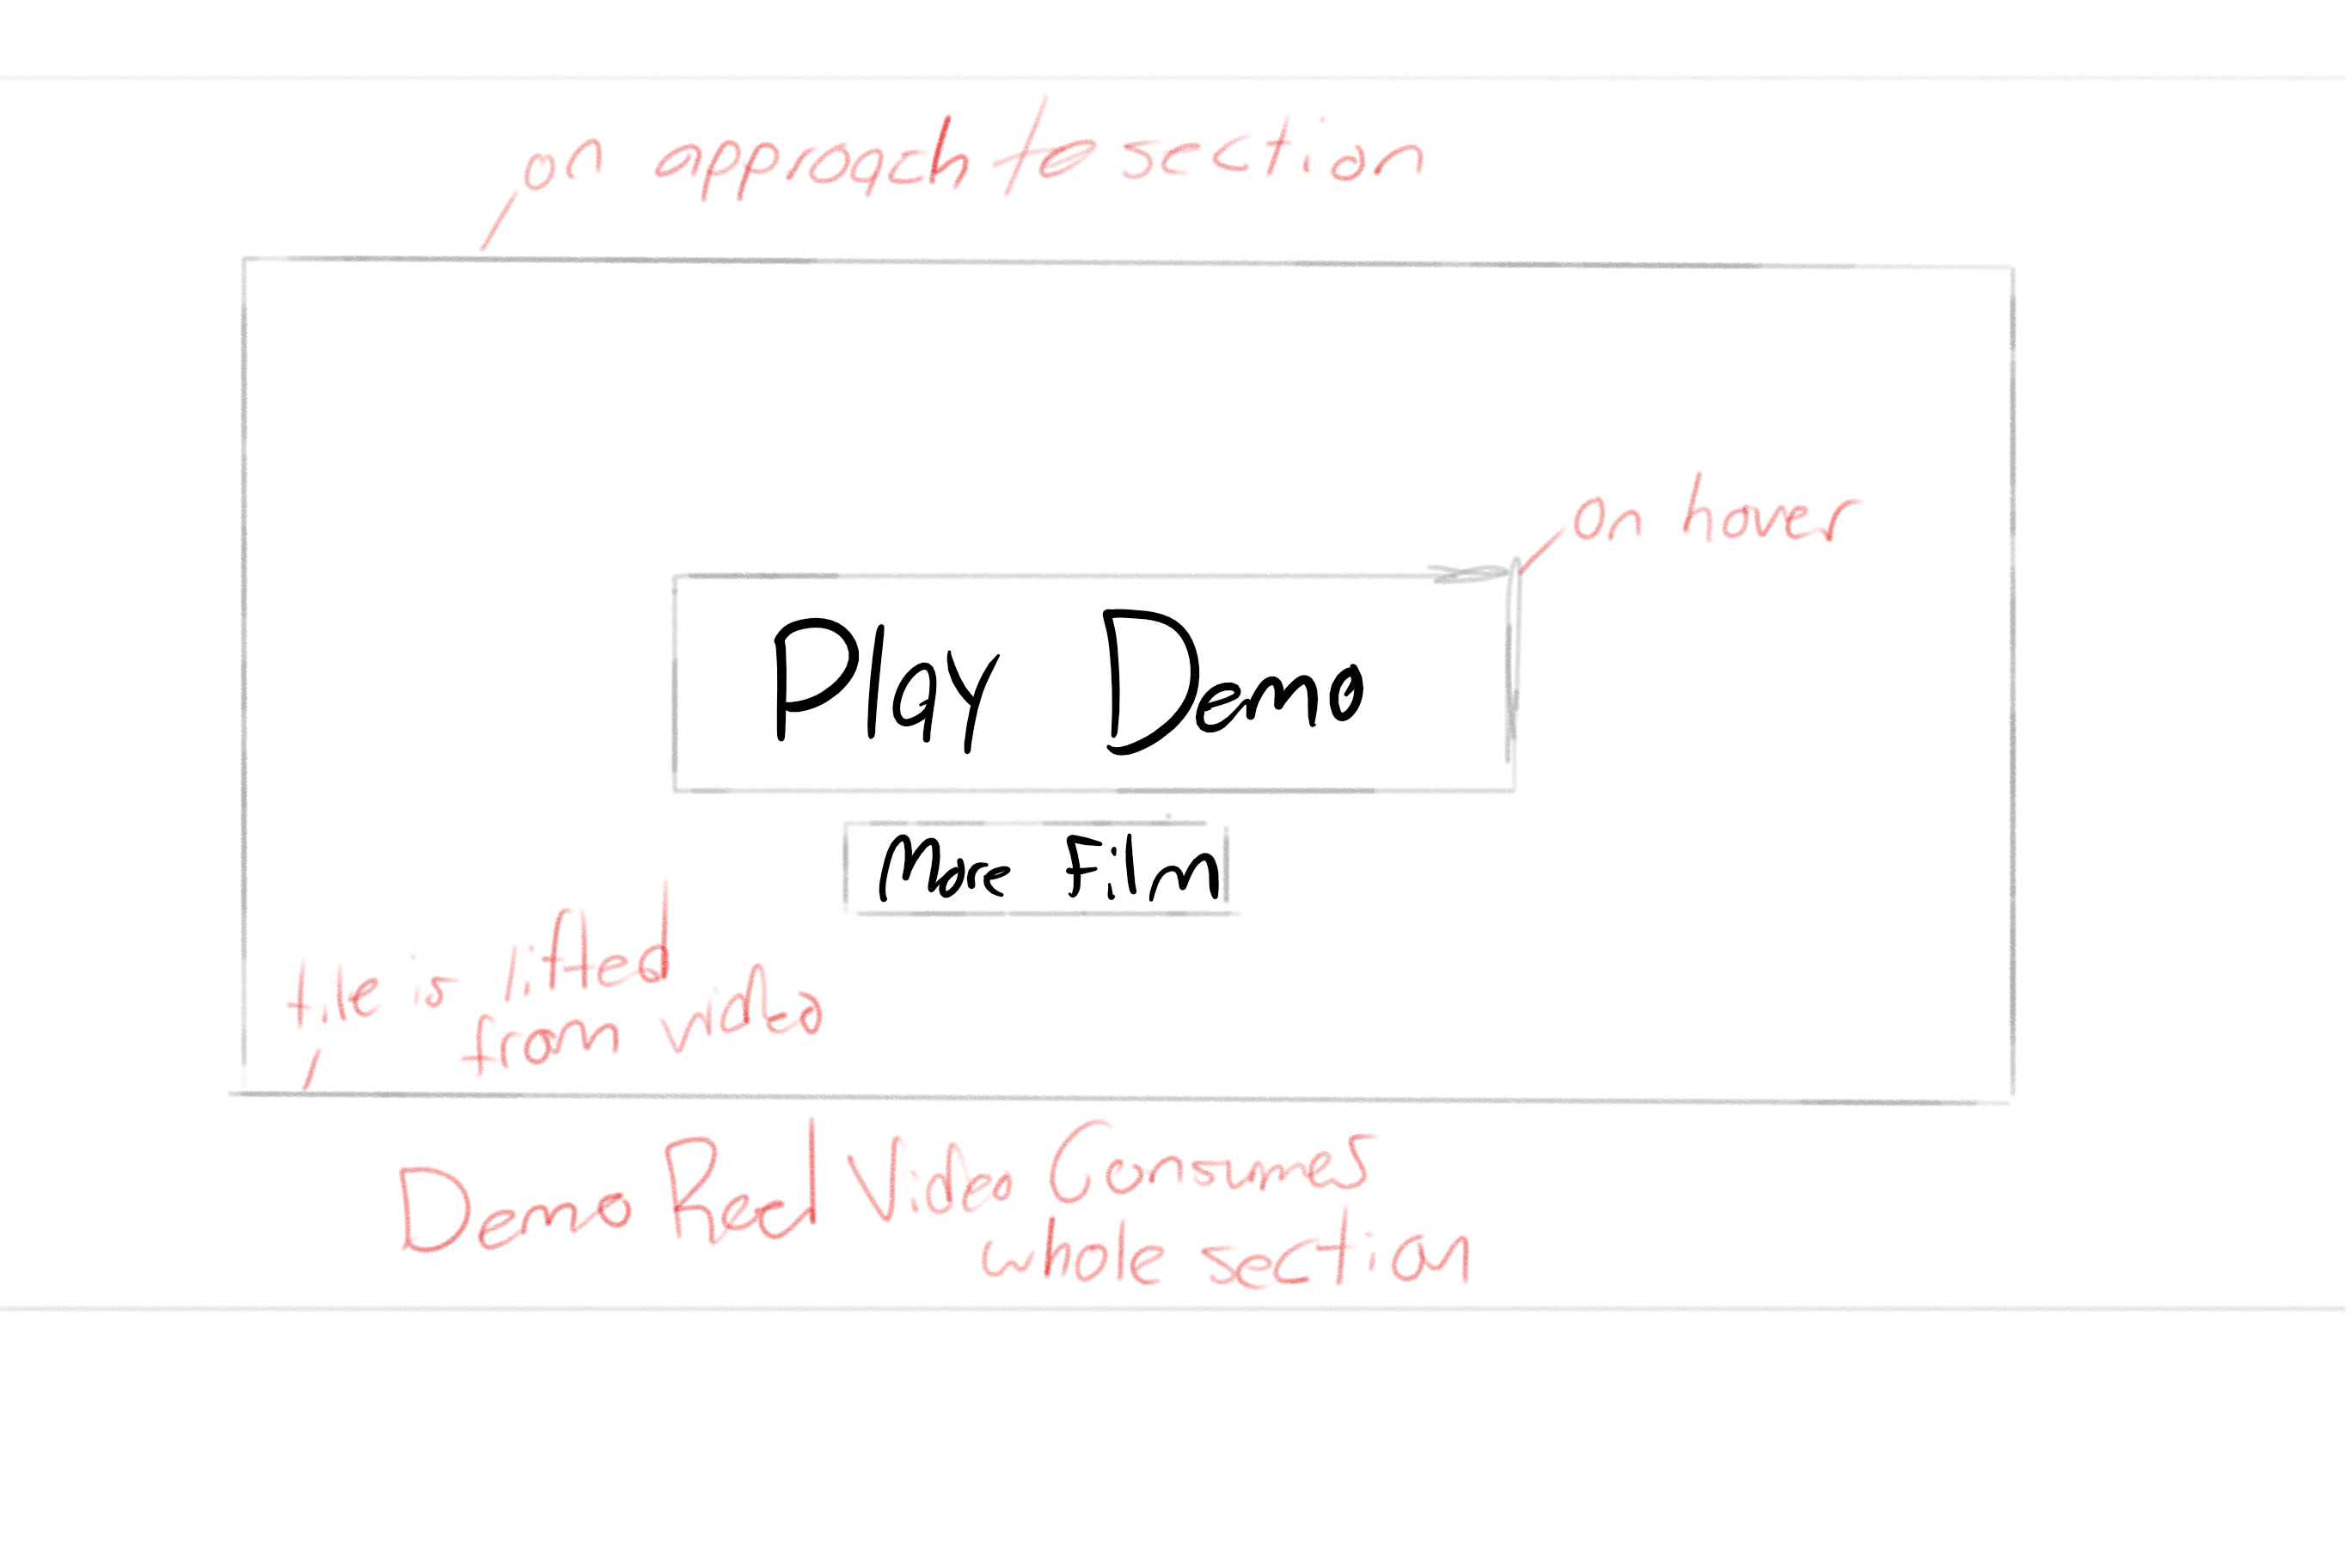 on approach to section
on hover
Play Demo
More Film
tile is lifted
from video
Demo Reel Video Consumes
whole section